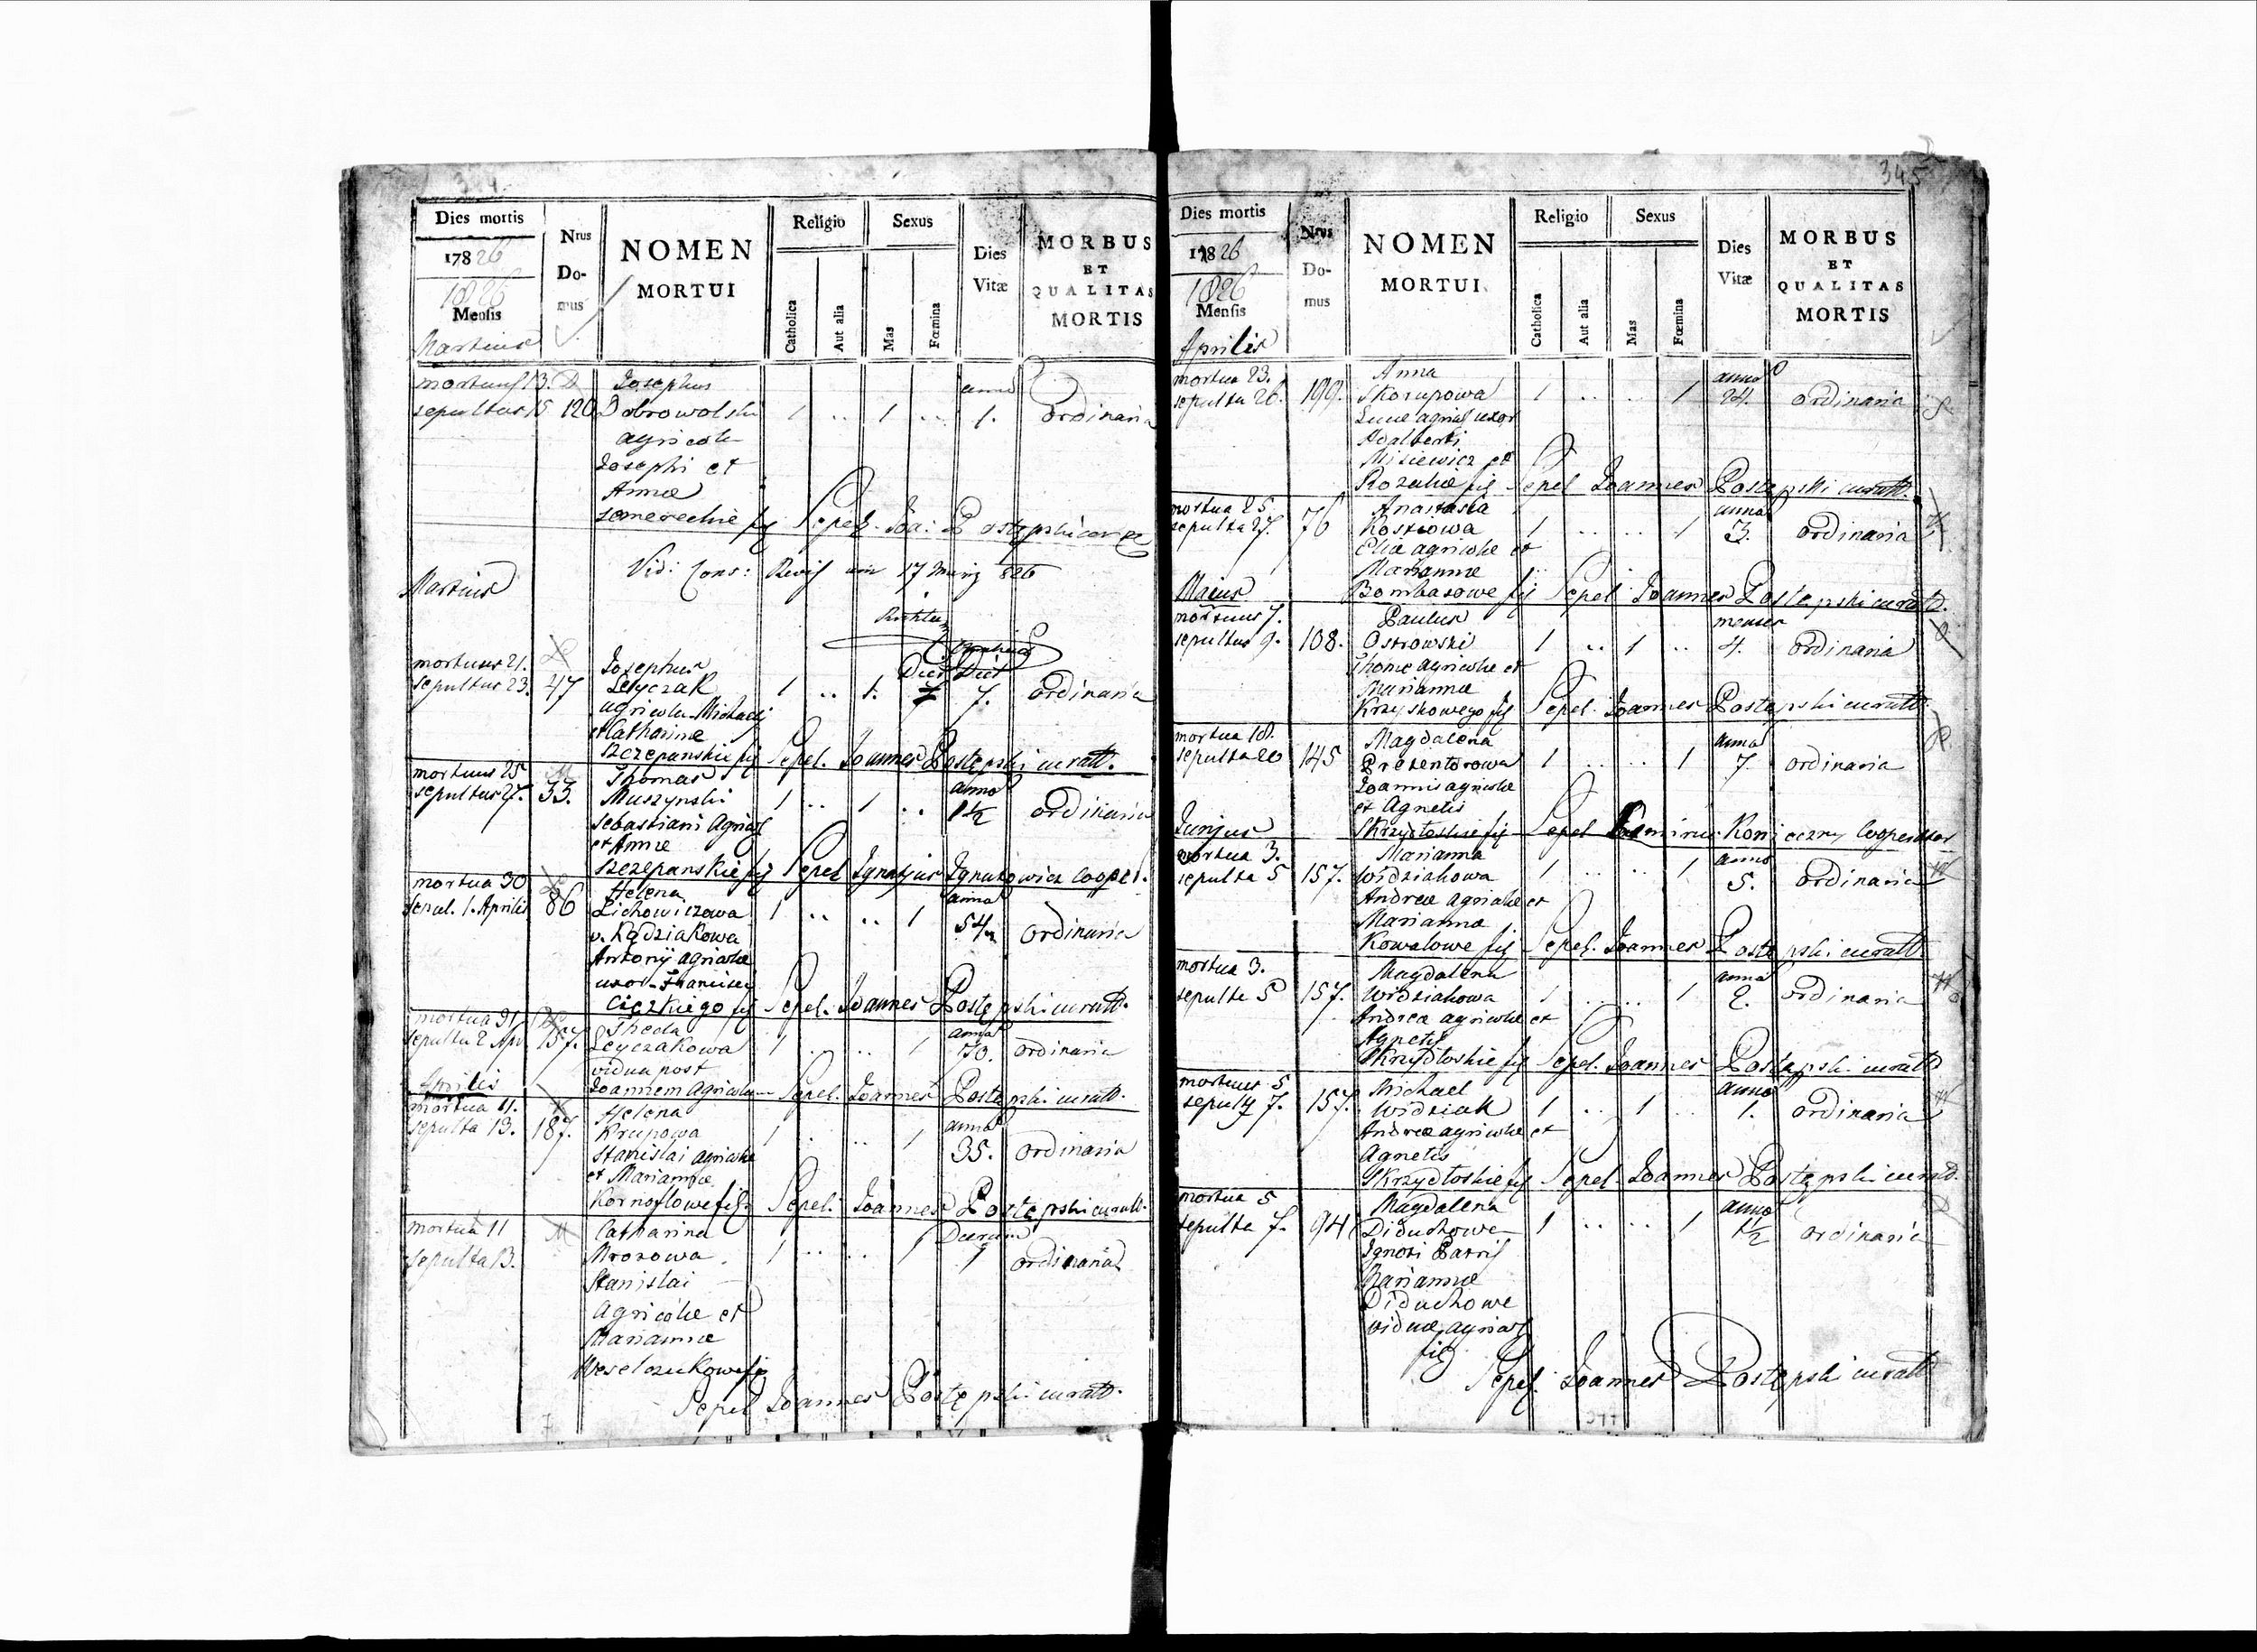 Dies mortis
17826
1826
Mensis
Martius
Nrus
Do-
mus
NOMEN
MORTUI
Religio
Catholica
Aut alia
Sexus
Mas
Fœmina
Dies
Vitæ
MORBUS
ET
QUALITAS
MORTIS
mortuus 13.
sepultus 15 120
Josephus
Dobrowolski
agricole
Josephi et
Annæ
1 .. 1 ..
anno
1.
ordinaria
Sepel. Joa: Postępski
Martius
Vid: Cons: 17 März 826
mortuus 21.
sepultus 23. 47
Josephus
Leyczak
agricolæ Michaelis
et Catharinæ
Szczepanskie fil
1 .. 1.
Dies
7.
ordinaria
Sepel. Joannes Postępski curatt.
mortuus 25
sepultus 27. 33.
Thomas
Muszynski
Sebastiani Agricol
et Annæ
Szczepanskie fil
1 .. 1 ..
anno
1½
ordinaria
Sepel Ignatius Ignatowicz Cooper.
mortua 30
sepul. 1. Aprilis 86
Helena
Lichowiczowa
v. Kądziakowa
Antonij agricolæ
uxor Francisci
Ciczkiego fil
1 .. .. 1
anno
54
ordinaria
Sepel. Joannes Postępski curatt.
mortua 31
sepulta 2 Apr 157.
Theda
Leyczakowa
vidua post
Joannem Agricolam
1 .. 1
anno
70.
ordinaria
Sepel. Joannes Postępski curatt.
Aprilis
mortua 11.
sepulta 13. 187.
Helena
Krupowa
Stanislai agricolæ
et Mariannæ
Kornoflowe fil.
1 . .. 1
anno
35.
ordinaria
Sepel. Joannes Postępski curatt.
mortua 11
sepulta 13.
M
Catharina
Mrozowa
Stanislai
Agricolæ et
Mariannæ
Weselczukowe fil
1 .. .. 1
1
ordinaria
Sepel Joannes Postępski curatt.
345
Dies mortis
17826
1826
Mensis
Aprilis
Nrus
Do-
mus
NOMEN
MORTUI
Religio
Catholica
Aut alia
Sexus
Mas
Fœmina
Dies
Vitæ
MORBUS
ET
QUALITAS
MORTIS
mortua 23.
sepulta 26. 199.
Anna
Skorupowa
Lucæ agricol uxor
Adalberti
Misiewicz et
Rozaliæ fil
1 .. 1
anno
24.
ordinaria
Sepel Joannes Postępski curatt.
mortua 25
sepulta 27. 76
Anastasia
Kostiowa
Eliæ agricolæ et
Mariannæ
Bombasowe fil
1 .. .. 1
anno
3.
ordinaria
Sepel Joannes Postępski curatt.
Maius
mortuus 7.
sepultus 9. 108.
Paulus
Ostrowski
Thomæ agricolæ et
Mariannæ
Krzyskowego fil
1 .. 1 ..
menses
4.
ordinaria
Sepel. Joannes Postępski curatt.
mortua 18.
sepulta 20 145
Magdalena
Prezentorowa
Joannis agricolæ
et Agnetis
Skrzydłoskie fil
1 .. .. 1
anno
7.
ordinaria
Sepel Konieczny Cooperator
Junjus
mortua 3.
sepulta 5 157.
Marianna
Widziakowa
Andreæ agricolæ et
Mariannæ
Kowalowe fil
1 .. .. 1
anno
5.
ordinaria
Sepel. Joannes Postępski curatt.
mortua 3.
sepulta 5 157.
Magdalena
Widziakowa
Andreæ agricolæ et
Agnetis
Skrzydłoskie fil
1 .. .. 1
anno
2.
ordinaria
Sepel. Joannes Postępski curatt.
mortuus 5
sepult 7. 157.
Michael
Widziak
Andreæ agricolæ et
Agnetis
Skrzydłoskie fil
1 .. 1 ..
anno
1.
ordinaria
Sepel. Joannes Postępski curatt.
mortua 5
sepulta 7. 94
Magdalena
Diduchowe
Ignoti Patris
Mariannæ
Diduchowe
viduæ agricol
fil
1 .. .. 1
anno
1½
ordinaria
Sepel. Joannes Postępski curatt